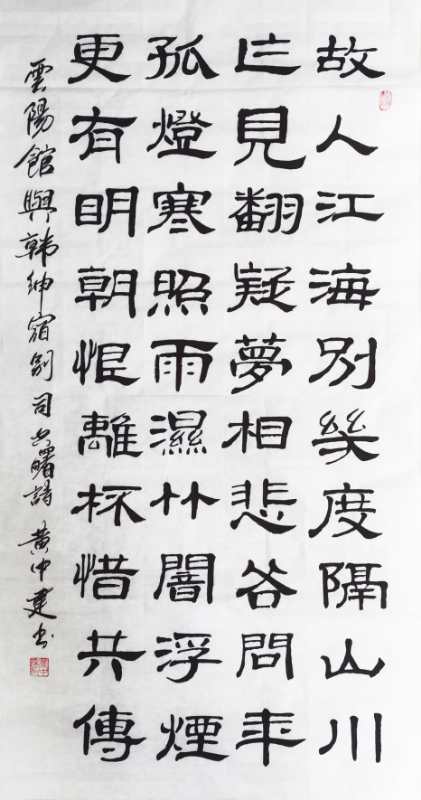 故人江海別幾度隔山川
乍見翻疑夢相悲各問年
孤燈寒照雨濕竹闇浮煙
更有明朝恨離杯惜共傳
雲陽館與韓紳宿別司空曙詩 黃中建書